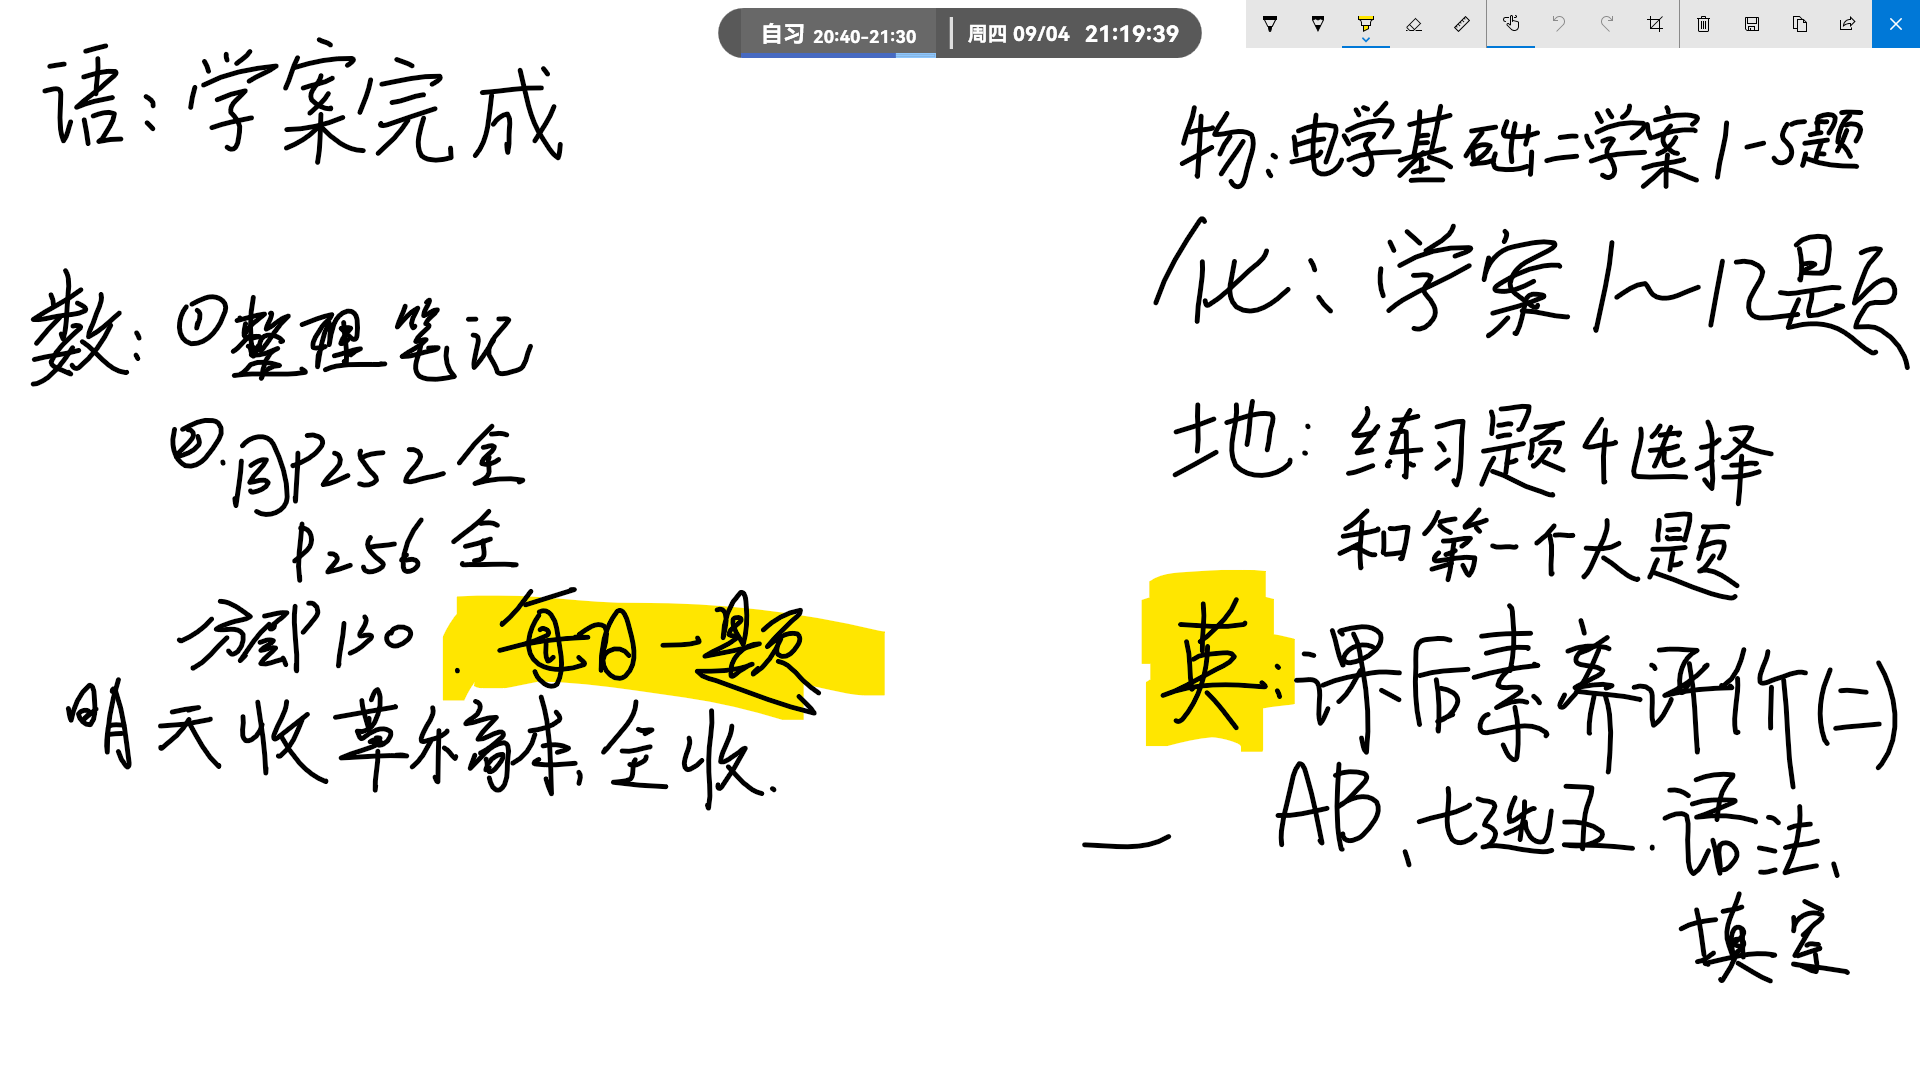 自习 20:40-21:30 周四 09/04 21:19:39
语：学案完成
数：①整理笔记
②.同P252全
P256全
分层P130.每日一题
明天收草稿本,全收.
物：电学基础二学案1-5题
化：学案1～12题
地：练习题4选择
和第一个大题
英：课后素养评价(二)
AB、七选五.语法、
填空